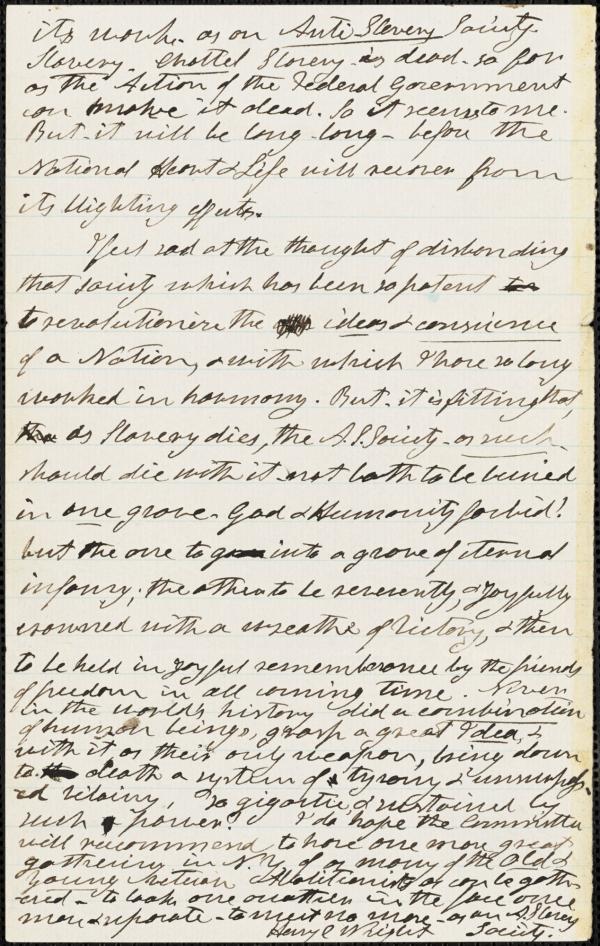 its work - as an Anti Slavery Society.
Slavery - Chattel Slavery - is dead - so far
as the Action of the Federal Government
can make it dead. So it seems to me.
But - it will be long - long - before the
National Heart & Life will recover from
its blighting effects.
I feel sad at the thought of disbanding
that society which has been so potent
to revolutionize the ideas & conscience
of a Nation, & with which I have so long
worked in harmony. But - it is fitting that,
as Slavery dies, the A. S. Society - as such -
should die with it - not both to be buried
in one grave - God & Humanity forbid!
but the one to go into a grave of eternal
infamy; the other to be reverently, & Joyfully
crowned with a wreathe of Victory, & then
to be held in joyful rememberance by the friends
of freedom in all coming time. Never
in the world's history did a combination
of human beings, grasp a great Idea, &
with it as their only weapon, bring down
to death a system of tyrany & unsurpass-
ed vilainy, so gigantic, & sustained by
such power. I do hope the Committee
will recommend to have one more great
gathering in N. Y. of as many of the Old &
Young Abolitionists as can be gath-
ered - to look one another in the face once
more & separate - to meet no more - as an A. Slavery
Henry C Wright Society.